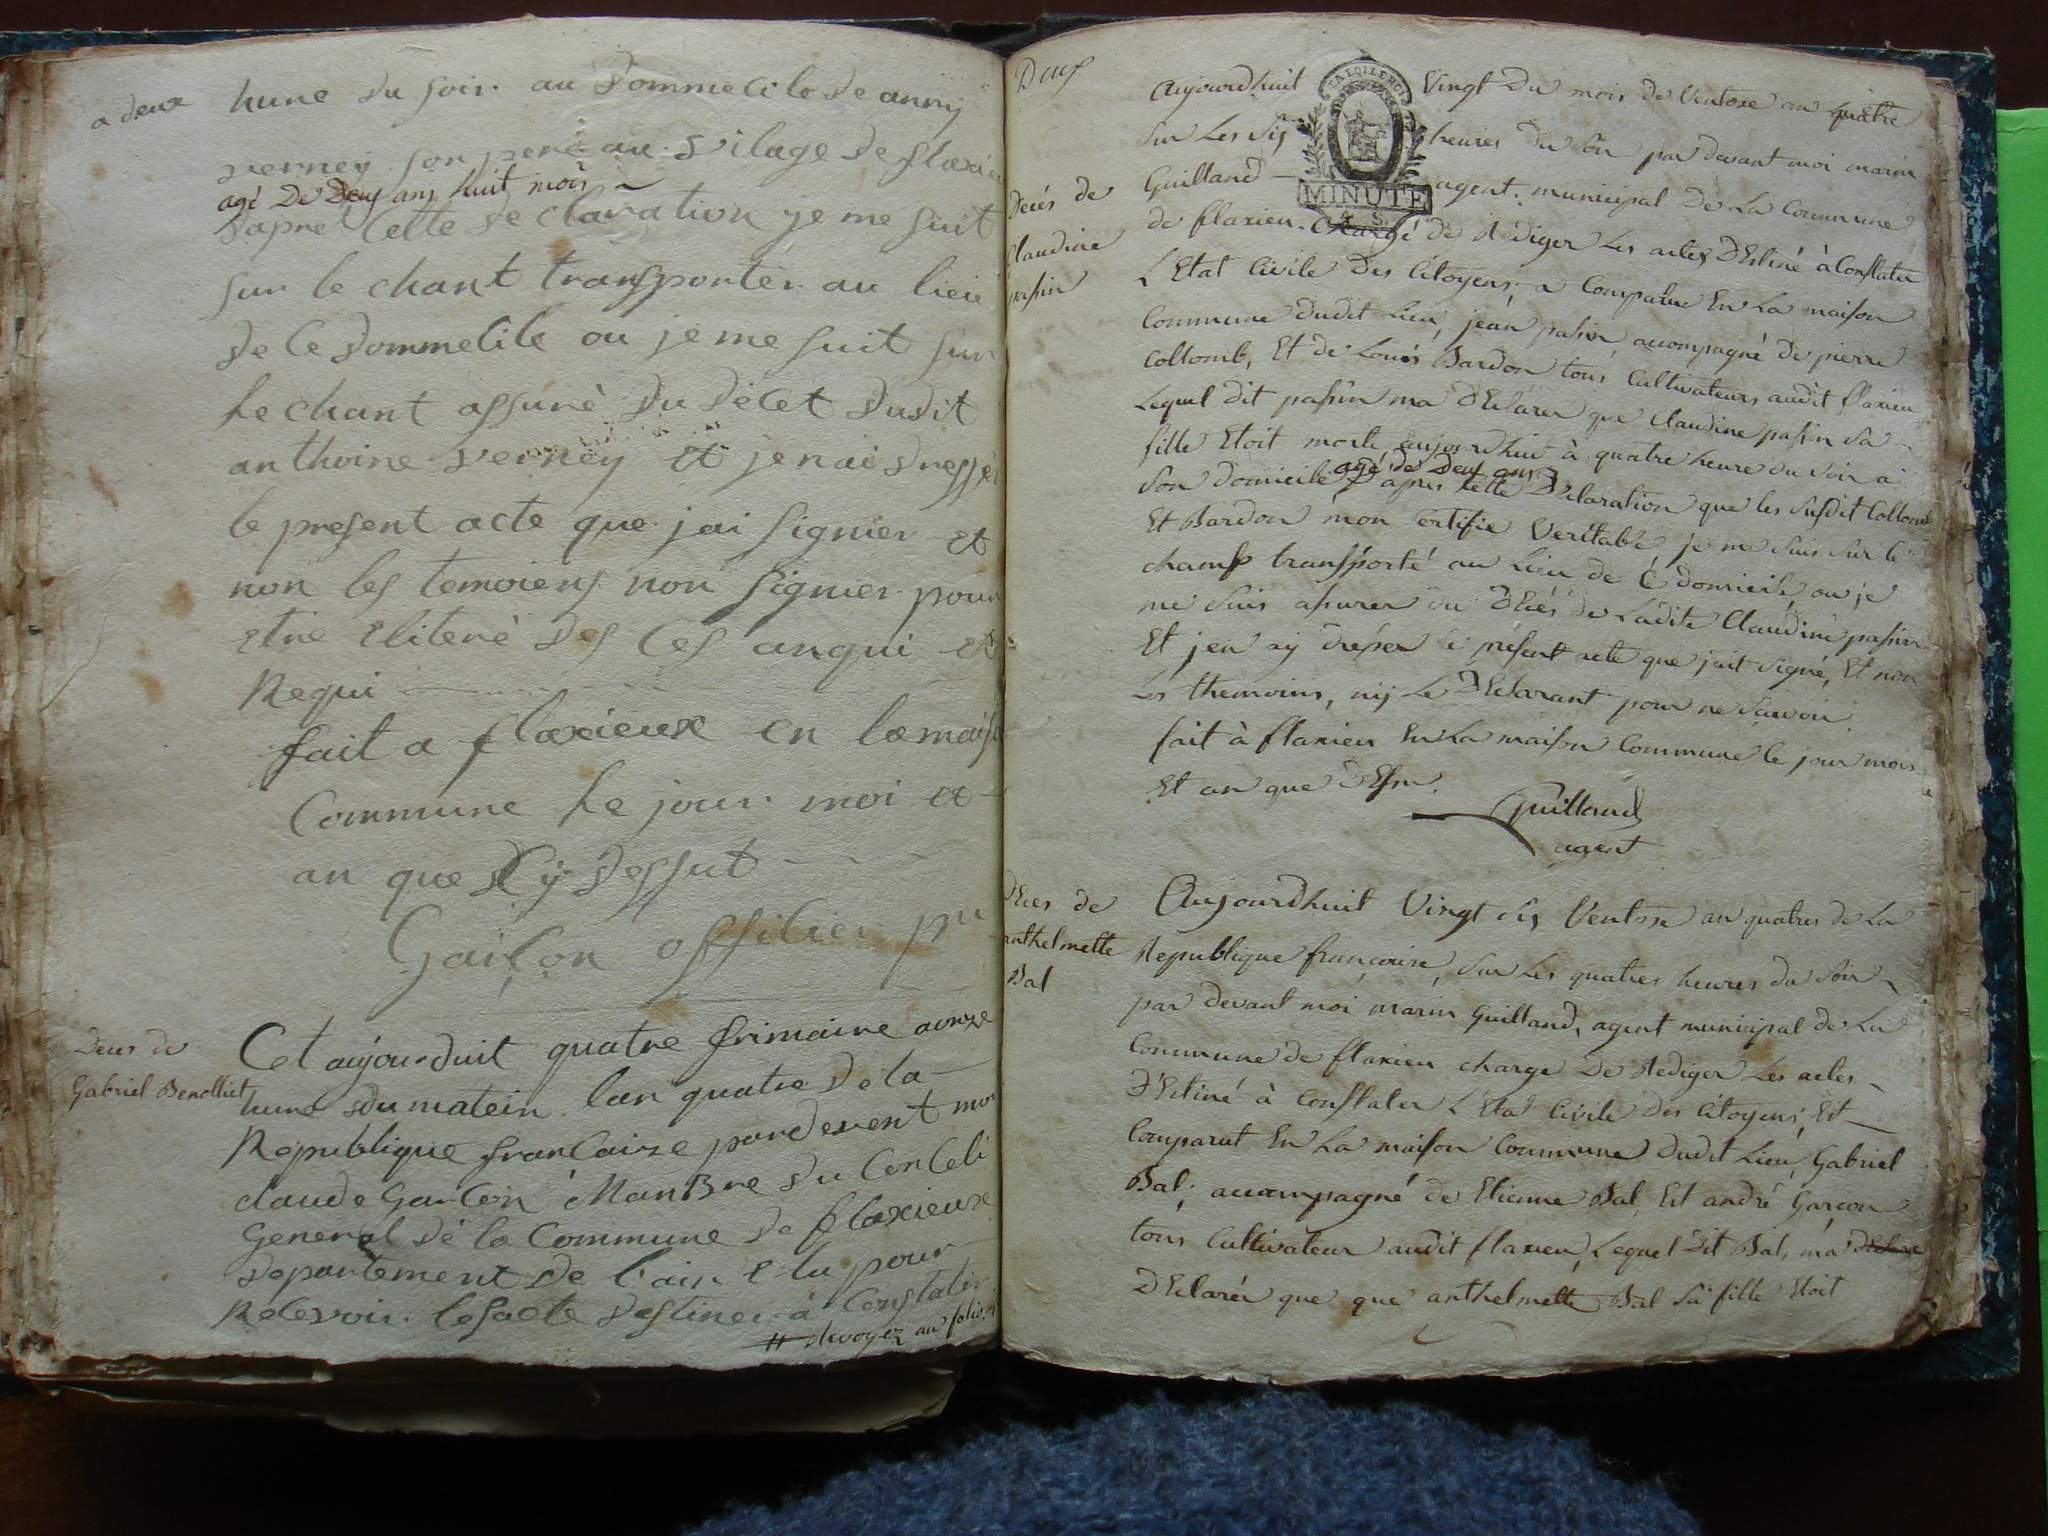 a deux
hure du soir au dommecile de anrij
verney son pere au vilage de flaxieu
agé De Deux ans huit mois
dapré cette declaration je me suit
sur le chant transporter au lieu
de ce dommecile ou je me suit sur
le chant assuré du décet dudit
anthoine verney et jenai dressér
le present acte que jai signier et
non les temoiens non signier pour
etre eliteré des ces anqui et
Requi
fait a flaxieux en la maison
Commune le jour moi et
an que dCy dessut
Garçon offilier pu
Deces de
Gabriel Benolliet
Cet aujourduit quatre frimaire aonze
hure du matein lan quatre de la
Republique francaize pardevent moi
claude Garcon Manbre du Conceli
General dé la Commune de flaxieux
departement de l'ain elu pour
Relevoir lesacte destiner à Constater
# devoyez au folio
Deux
Aujourdhuit Vingt Du mois de Ventose an quatre
Sur Les Six heures Du Soir par devant moi marin
MINUTE
Guilland agent municipal De La Commune
de flaxieu Chargé de Rediger Les actes DEstiné à Constater
Decés de
Claudine
passin
L'Etat Civile Des Citoyens, a Comparu En La maison
Commune dudit Lieu, jean passin accompagné De pierre
Collomb, Et de Louis Bardon tous Cultivateurs audit flaxieu
Lequel dit passin ma DEclarer que Claudine passin Sa
fille Etoit morte aujourdhui à quatre heure du Soir a
agé de Deux ans
Son domicile D'apres cette DEclaration que les Susdit Collomb
Et Bardon mon Certifie Veritable, je me suis sur le
champ transporté au Lieu de Ce domicile, ou je
me Suis asurer du DEcés de Ladite Claudine passin
Et jen aij dréser le présent acte que jait Signé, Et non
Les themoins, nij Le DEclarant pour ne Savoir
fait à flaxieu En La maison Commune le jour mois
Et an que DEssu.
Guilland
agent
DEces de
anthelmette
Bal
Aujourdhuit Vingt Six Ventose an quatres de La
Republique françoise, Sur Les quatres heures du Soir
par devant moi marin Guilland, agent municipal de La
Commune de flaxieu charge De Rediger Les actes
D'Estiné à Constater L'Etat Civile Des Citoyens, Est
Comparut En La maison Commune dudit Lieu, Gabriel
Bal, accompagné de Etienne Bal, Et andré Garcon
tous Cultivateur audit flaxieu, Lequel Dit Bal, ma declare
DEclarér que que anthelmette Bal Sa fille Etoit